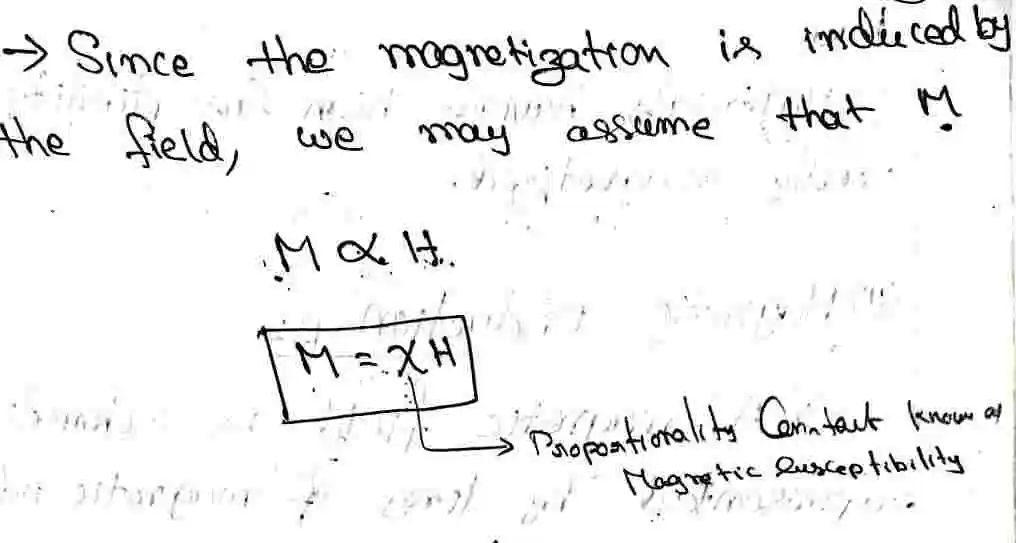 → Since the magnetization is induced by
the field, we may assume that M
M ∝ H.
M = χH
→ Proportionality Constant known as
Magnetic Susceptibility